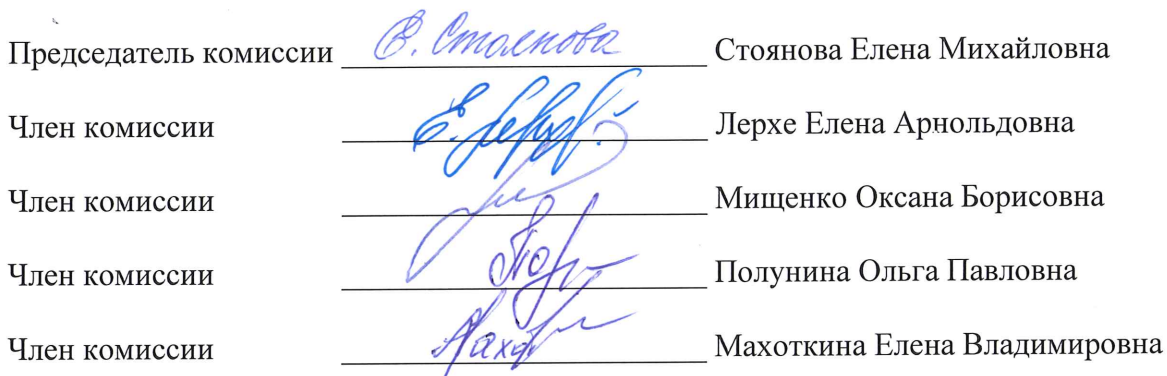 Председатель комиссии Е. Стоянова Стоянова Елена Михайловна
Член комиссии Лерхе Елена Арнольдовна
Член комиссии Мищенко Оксана Борисовна
Член комиссии Полунина Ольга Павловна
Член комиссии Махоткина Елена Владимировна